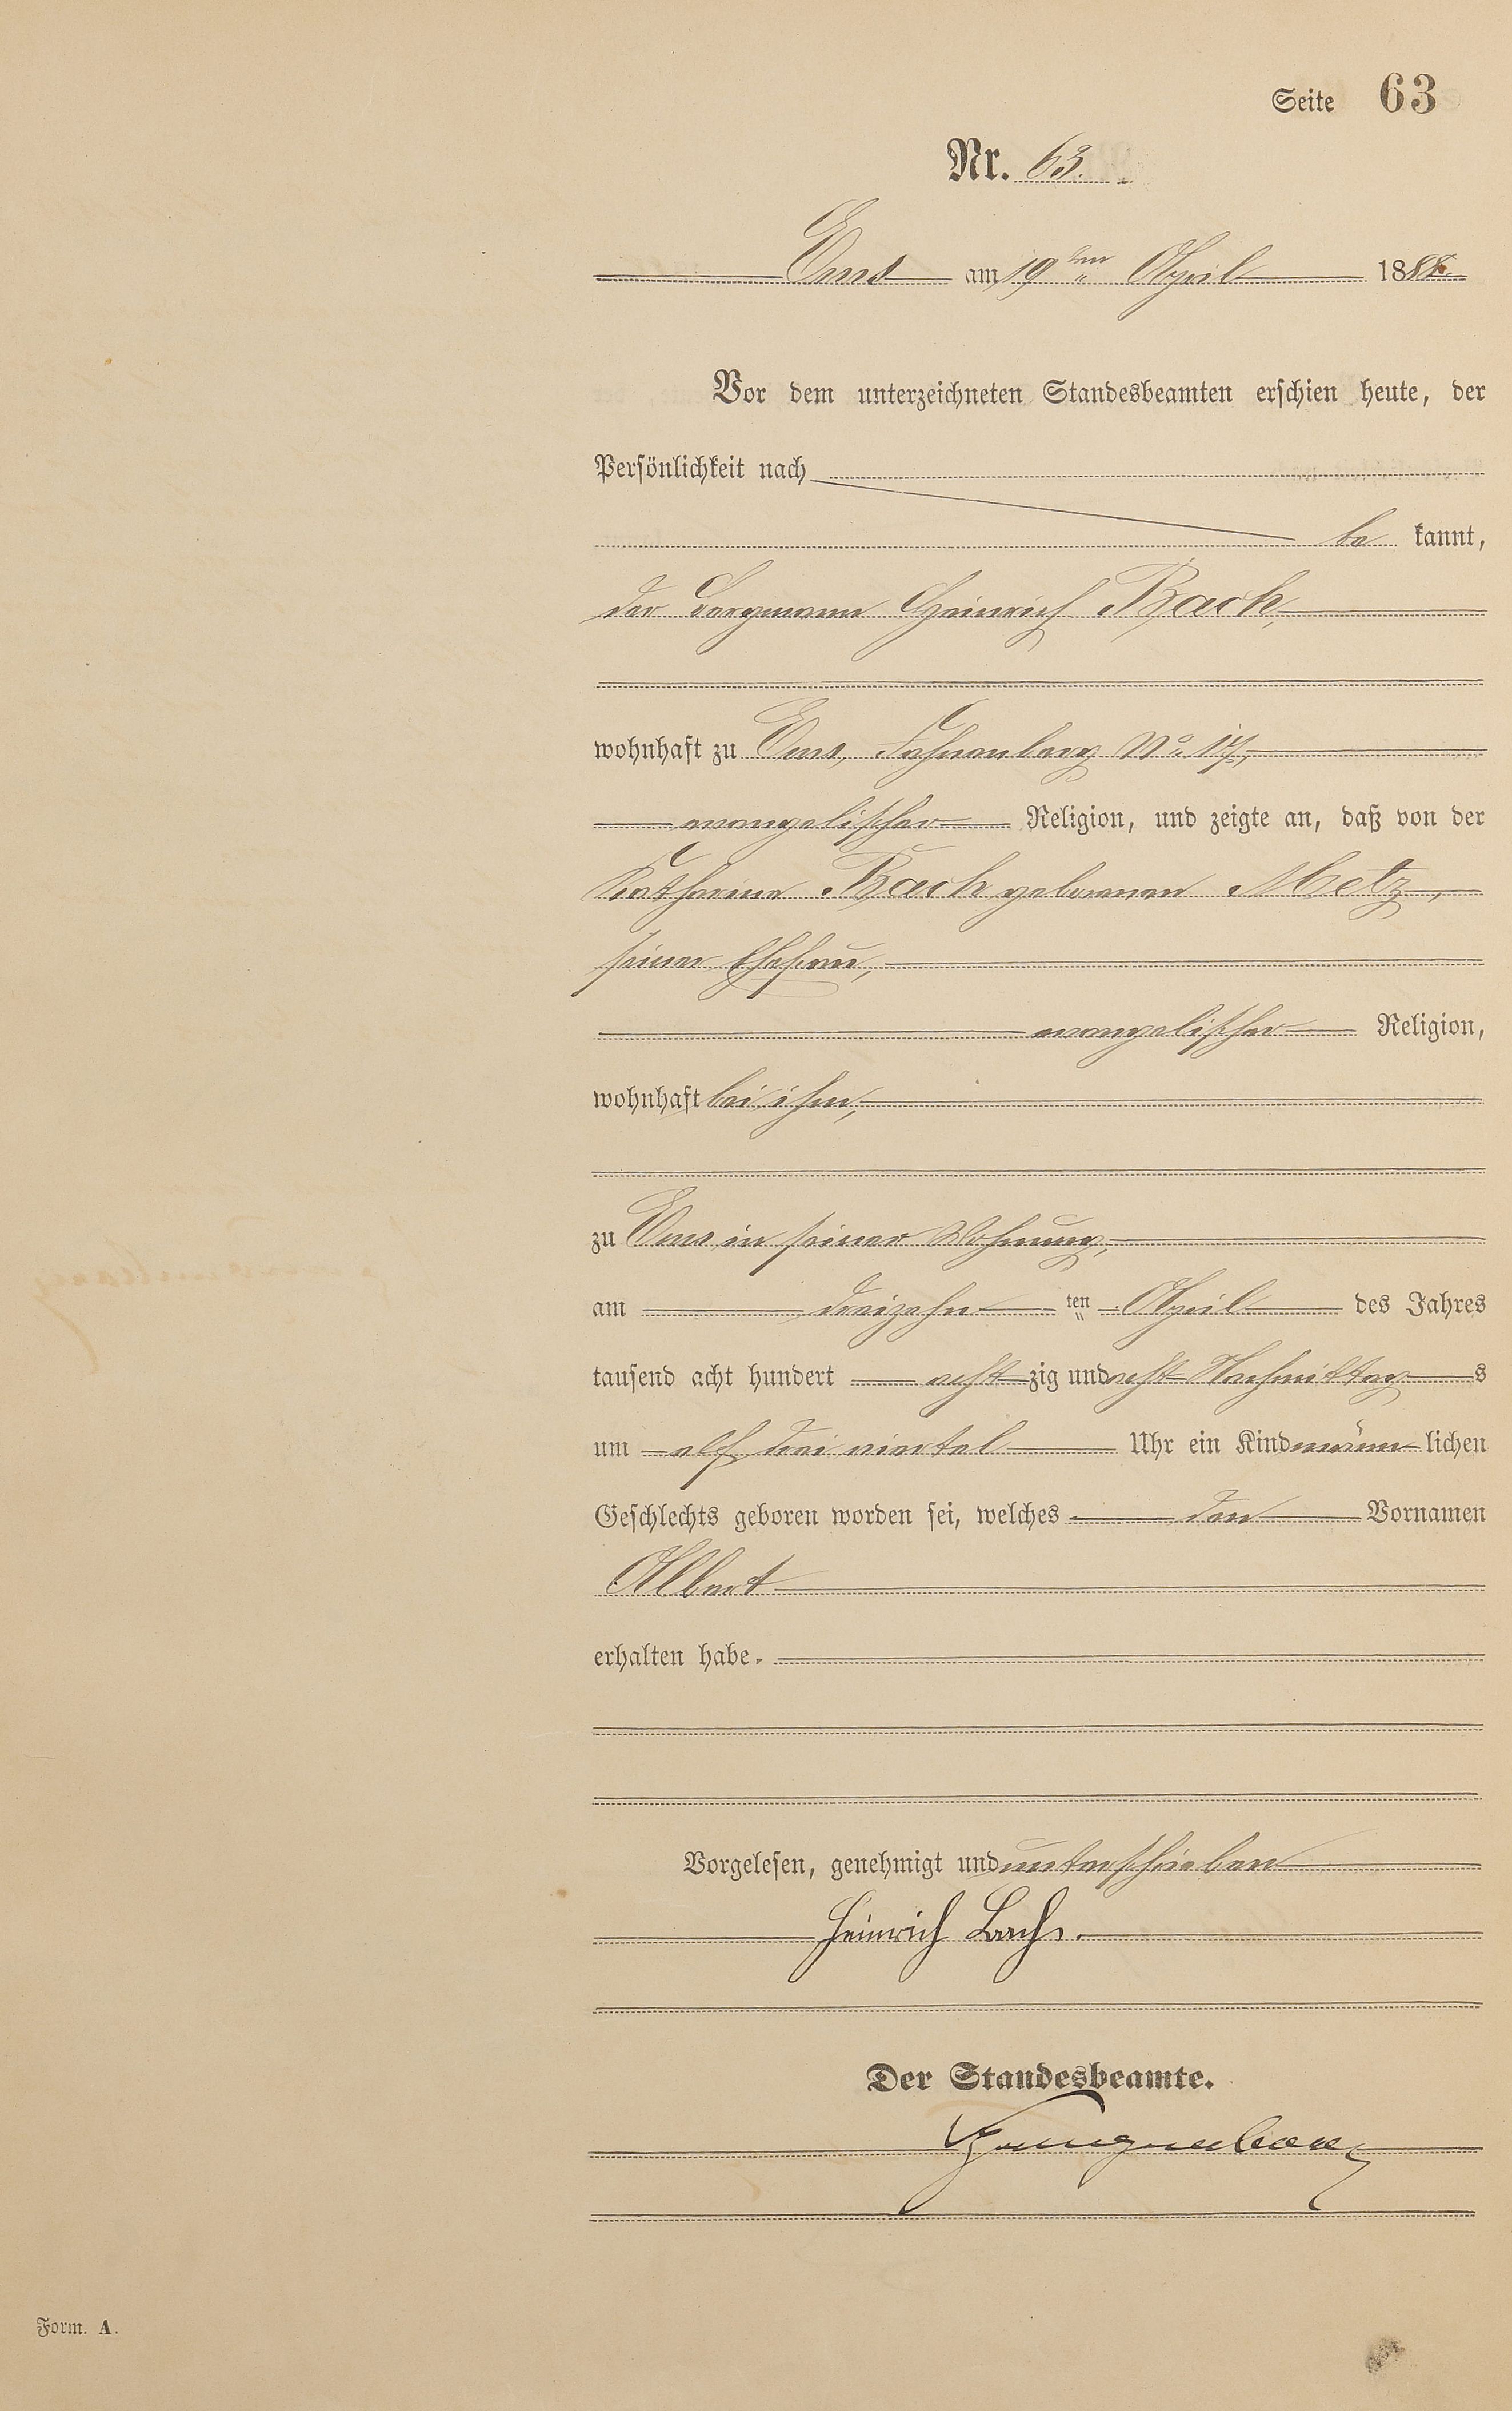 Seite 63
Nr. 63.
Ems am 19ten April 1888.
Vor dem unterzeichneten Standesbeamten erschien heute, der
Persönlichkeit nach
be kannt,
der Bergmann Heinrich Bach,
wohnhaft zu Ems, No 17,
evangelischer Religion, und zeigte an, daß von der
Katharina Bach geborenen Metz,
seiner Ehefrau,
evangelischer Religion,
wohnhaft bei ihm,
zu Ems in seiner Wohnung,
am dreizehn ten April des Jahres
tausend acht hundert acht zig und acht Nachmittag s
um elf drei viertel Uhr ein Kind männ lichen
Geschlechts geboren worden sei, welches den Vornamen
Albert
erhalten habe.
Vorgelesen, genehmigt und unterschrieben
Heinrich Bach.
Der Standesbeamte.
Form. A.